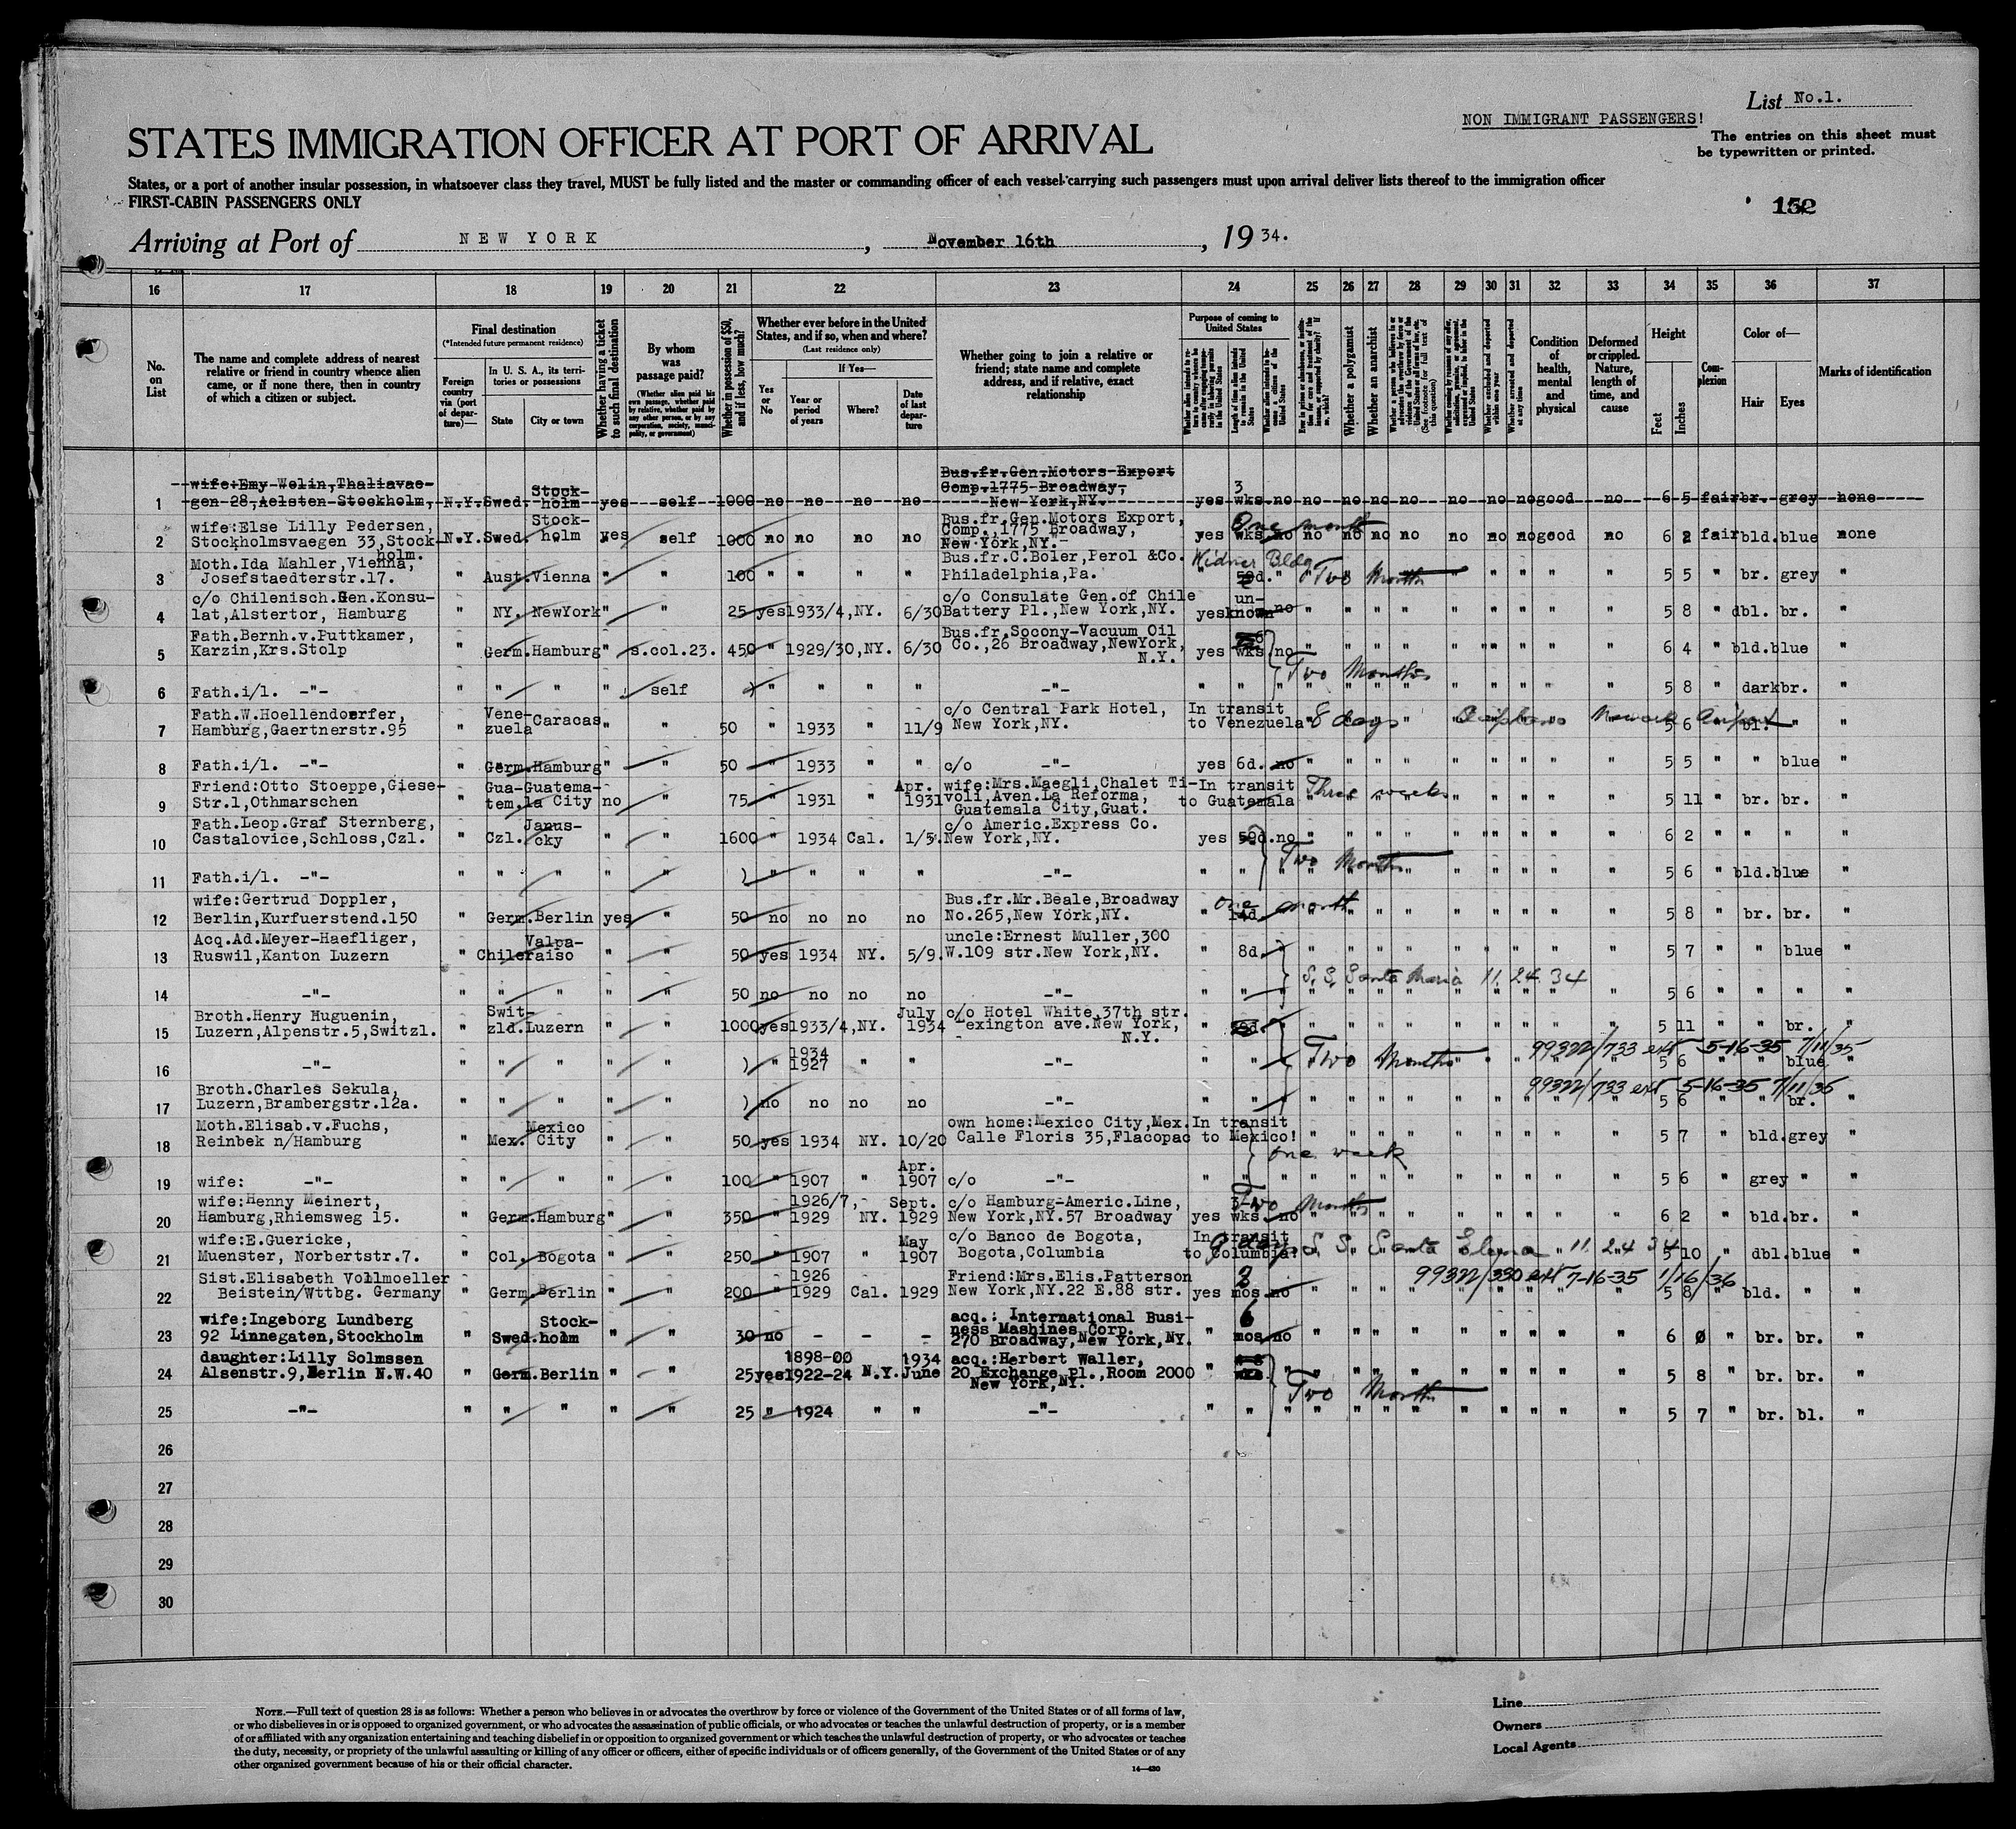 List No.1.
NON IMMIGRANT PASSENGERS!
STATES IMMIGRATION OFFICER AT PORT OF ARRIVAL
The entries on this sheet must
be typewritten or printed.
States, or a port of another insular possession, in whatsoever class they travel, MUST be fully listed and the master or commanding officer of each vessel carrying such passengers must upon arrival deliver lists thereof to the immigration officer
FIRST-CABIN PASSENGERS ONLY
152
Arriving at Port of NEW YORK, November 16th, 1934.
16 17 18 19 20 21 22 23 24 25 26 27 28 29 30 31 32 33 34 35 36 37
No. on List
The name and complete address of nearest relative or friend in country whence alien came, or if none there, then in country of which a citizen or subject.
Final destination
(*Intended future permanent residence)
Foreign country via (port of departure)—
In U. S. A., its territories or possessions
State
City or town
Whether having a ticket to such final destination
By whom was passage paid?
(Whether alien paid his own passage, whether paid by relative, whether paid by any other person, or by any corporation, society, municipality, or government)
Whether in possession of $50, and if less, how much?
Whether ever before in the United States, and if so, when and where?
(Last residence only)
Yes or No
If Yes—
Year or period of years
Where?
Date of last departure
Whether going to join a relative or friend; state name and complete address, and if relative, exact relationship
Purpose of coming to United States
Length of time alien intends to remain in the United States
Whether alien intends to become a citizen of the United States
Whether a polygamist
Whether an anarchist
Condition of health, mental and physical
Deformed or crippled. Nature, length of time, and cause
Height
Feet
Inches
Complexion
Color of—
Hair
Eyes
Marks of identification
1 wife:Emy Welin,Thaliavaegen 28,Aelsten Stockholm, N.Y. Swed. Stockholm yes self 1000 no no no no Bus.fr.Gen.Motors Export Comp.1775 Broadway, New York,NY. yes 3 wks no no no no no no no no good no 6 5 fair br. grey none
2 wife:Else Lilly Pedersen, Stockholmsvaegen 33,Stockholm. N.Y. Swed. Stockholm yes self 1000 no no no no Bus.fr.Gen.Motors Export, Comp.,1775 Broadway, New York,NY. yes wks no One month no no no no no no no good no 6 2 fair bld. blue none
3 Moth.Ida Mahler,Vienna, Josefstaedterstr.17. " Aust. Vienna " " 100 " " " " Bus.fr.C.Boler,Perol &Co. Philadelphia,Pa. Widner Bldg " 59d. " Two Months 5 5 " br. grey "
4 c/o Chilenisch.Gen.Konsulat,Alstertor, Hamburg " NY. NewYork " " 25 yes 1933/4,NY. 6/30 c/o Consulate Gen.of Chile Battery Pl.,New York,NY. yes unknown no " " " " " " " " " 5 8 " dbl. br. "
5 Fath.Bernh.v.Puttkamer, Karzin,Krs.Stolp " Germ. Hamburg " s.col.23. 450 " 1929/30,NY. 6/30 Bus.fr.Socony-Vacuum Oil Co.,26 Broadway,NewYork, N.Y. yes wks no " " " " " " " " " 6 4 " bld. blue "
6 Fath.i/l. -"- " " " " self ) " " " " -"- " " " Two Months 5 8 " dark br. "
7 Fath.W.Hoellendoerfer, Hamburg,Gaertnerstr.95 " Venezuela Caracas " " 50 " 1933 " 11/9 c/o Central Park Hotel, New York,NY. In transit to Venezuela 8 days Airplane Newark Airport 5 6 " bl. " "
8 Fath.i/l. -"- " Germ. Hamburg " " 50 " 1933 " " c/o -"- yes 6d. no " " " " " " " " " 5 5 " " blue "
9 Friend:Otto Stoeppe,Giese-Str.1,Othmarschen " Guatem. Guatemala City no " 75 " 1931 " Apr. 1931 wife:Mrs.Maegli,Chalet Tivoli,Aven.La Reforma, Guatemala City,Guat. In transit to Guatemala Three weeks 5 11 " br. br. "
10 Fath.Leop.Graf Sternberg, Castalovice,Schloss,Czl. " Czl. Janus-cky " " 1600 " 1934 Cal. 1/5. c/o Americ.Express Co. New York,NY. yes 59d. no " " " " " " " " " 6 2 " " " "
11 Fath.i/l. -"- " " " " " ) " " " " -"- " " " Two Months 5 6 " bld. blue "
12 wife:Gertrud Doppler, Berlin,Kurfuerstend.150 " Germ. Berlin yes " 50 no no no no Bus.fr.Mr.Beale,Broadway No.265,New York,NY. " 14d. One month 5 8 " br. br. "
13 Acq.Ad.Meyer-Haefliger, Ruswil,Kanton Luzern " Chile Valparaiso " " 50 yes 1934 NY. 5/9. uncle:Ernest Muller,300 W.109 str.New York,NY. " 8d. " " " " " " " " " " 5 7 " " blue "
14 -"- " " " " " 50 no no no no -"- " " " S.S. Santa Maria 11.24.34 5 6 " " " "
15 Broth.Henry Huguenin, Luzern,Alpenstr.5,Switzl. " Switzld. Luzern " " 1000 yes 1933/4,NY. July 1934 c/o Hotel White,37th str. exington ave.New York, N.Y. " d. " " " " " " " " " " 5 11 " " br. "
16 -"- " " " " " ) " 1934 1927 " " -"- " " " Two Months 99322/733 ext 5-16-35 7/11/35 5 6 " " blue "
17 Broth.Charles Sekula, Luzern,Brambergstr.12a. " " " " " ) no no no no -"- " " " 99322/733 ext 5-16-35 7/11/35 5 6 " " br. "
18 Moth.Elisab.v.Fuchs, Reinbek n/Hamburg " Mex. Mexico City " " 50 yes 1934 NY. 10/20 own home:Mexico City,Mex. Calle Floris 35,Flacopac In transit to Mexico! " " " " " " " " " 5 7 " bld. grey "
19 wife: -"- " " " " " 100 " 1907 " Apr. 1907 c/o -"- " " " one week 5 6 " grey " "
20 wife:Henny Meinert, Hamburg,Rhiemsweg 15. " Germ. Hamburg " " 350 " 1926/7, 1929 NY. Sept. 1929 c/o Hamburg-Americ.Line, New York,NY.57 Broadway yes wks. no Two Months 6 2 " bld. br. "
21 wife:E.Guericke, Muenster, Norbertstr.7. " Col. Bogota " " 250 " 1907 " May 1907 c/o Banco de Bogota, Bogota,Columbia In transit to Columbia! 9 days S S Santa Elena 11 24 34 5 10 " dbl. blue "
22 Sist.Elisabeth Vollmoeller Beistein/Wttbg. Germany " Germ. Berlin " " 200 " 1926 1929 Cal. 1929 Friend:Mrs.Elis.Patterson New York,NY.22 E.88 str. yes mos no 99322/330 ext 7-16-35 1/16/36 5 8 " bld. " "
23 wife:Ingeborg Lundberg 92 Linnegaten,Stockholm " Swed. Stockholm " " 30 no - - - acq.: International Business Mashines Corp. 270 Broadway,New York,NY. " 6 mos no " " " " " " " " " 6 0 " br. br. "
24 daughter:Lilly Solmssen Alsenstr.9,Berlin N.W.40 " Germ. Berlin " " 25 yes 1898-00 1922-24 N.Y. 1934 June acq.:Herbert Waller, 20 Exchange Pl.,Room 2000 New York,NY. " wks " " " " " " " " " " 5 8 " br. br. "
25 -"- " " " " " 25 " 1924 " " -"- " " " Two Months 5 7 " br. bl. "
26
27
28
29
30
NOTE.—Full text of question 28 is as follows: Whether a person who believes in or advocates the overthrow by force or violence of the Government of the United States or of all forms of law,
or who disbelieves in or is opposed to organized government, or who advocates the assassination of public officials, or who advocates or teaches the unlawful destruction of property, or is a member
of or affiliated with any organization entertaining and teaching disbelief in or opposition to organized government or which teaches the unlawful destruction of property, or who advocates or teaches
the duty, necessity, or propriety of the unlawful assaulting or killing of any officer or officers, either of specific individuals or of officers generally, of the Government of the United States or of any
other organized government because of his or their official character.
14—430
Line
Owners
Local Agents